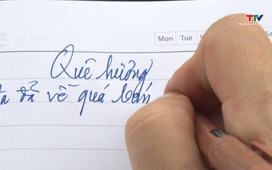 TTV
Mon Tue
Quê hương
đã về quá bán